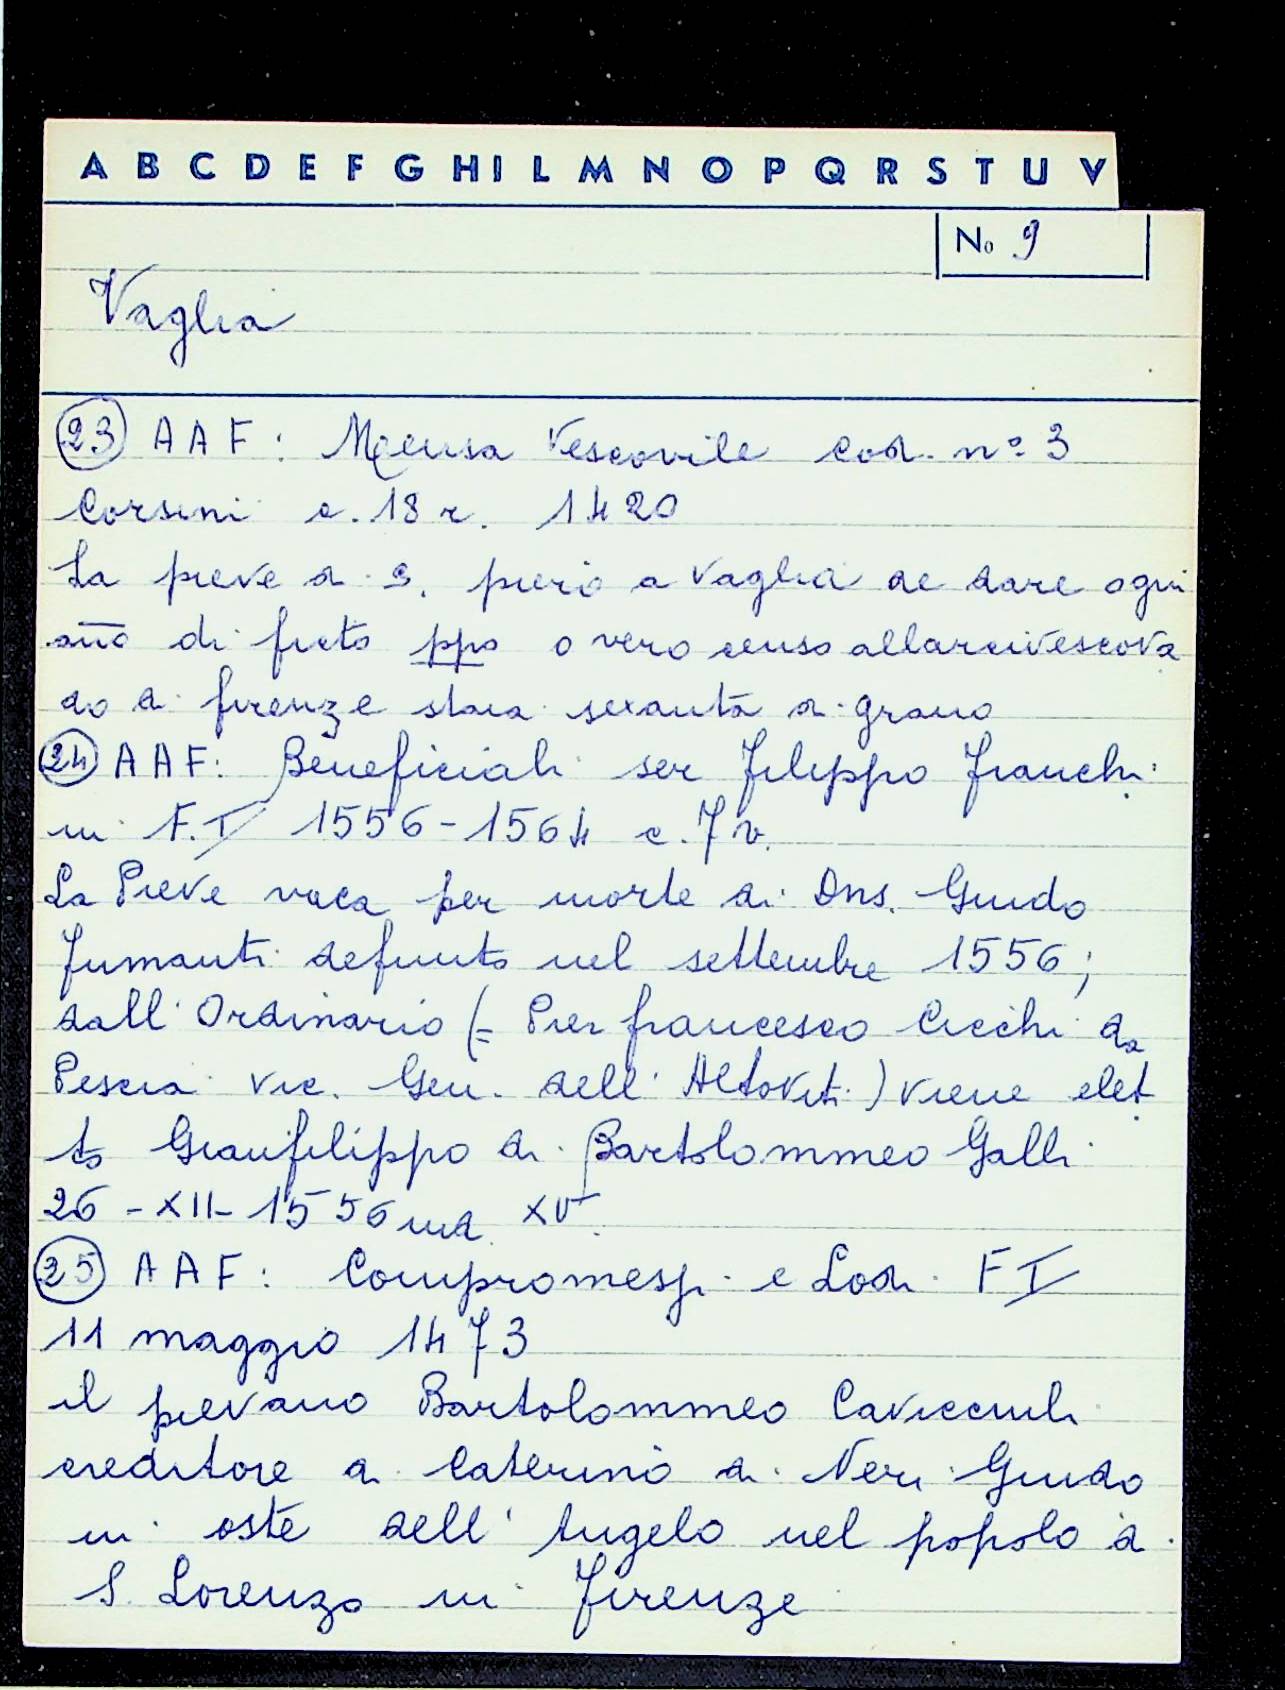 A B C D E F G H I L M N O P Q R S T U V
No 9
Vaglia
23 AAF: Mensa Vescovile cod. n° 3
Corsini c. 18 r. 1420
La pieve di S. piero a vaglia de dare ogni
año di ficto ppo o vero censo allarcivescova
do di firenze staia sexanta di grano
24 AAF: Beneficiali ser Filippo Franchi
ni F. I 1556-1564 c. 7 v.
La Pieve vaca per morte di Dns. Guido
Fumanti defunto nel settembre 1556;
dall'Ordinario (= Pier francesco Cicchi da
Pescia vic. Gen. dell'Altoviti) viene elet
to Gianfilippo di Bartolommeo Galli
26-XII-1556 ind. XV.
25 AAF: Compromessi e Lodi F I
11 maggio 1473
il pievano Bartolommeo Cavicciuli
creditore di Caterino di Neri Guido
ni oste dell'Angelo nel popolo di
S. Lorenzo in Firenze